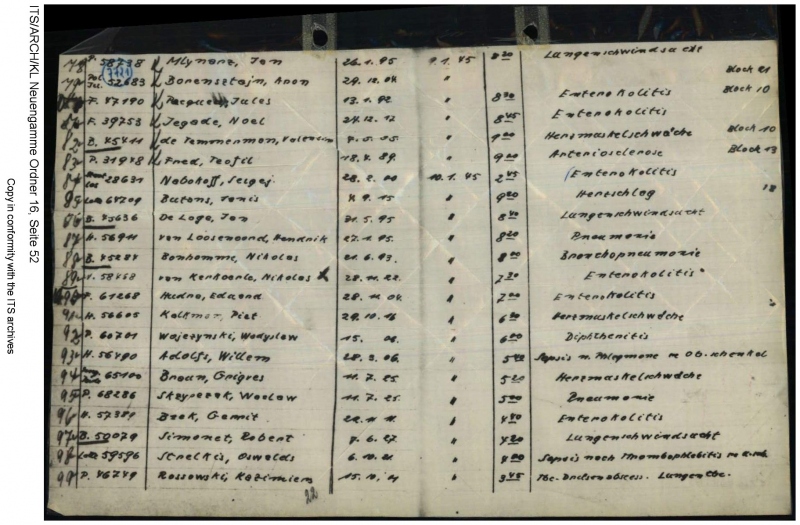 ITS/ARCH/KL Neuengamme Ordner 16, Seite 52
Copy in conformity with the ITS archives
P. 58738 Mlynarz, Jan 26.1.95 9.1.45 8 20 Langenschwindsucht
(7721) Block 21
52683 Borensztajn, Aron 29.12.04 " Block 10
F. 47190 Jules 13.1.92 " 8 30 Enterokolitis
F. 39753 Jegade, Noel 24.12.12 " 8 45 Enterokolitis
82 B. 45411 de Temmerman, Valentin " 9 00 Herzmuskelschwäche Block 10
83 P. 31978 Fred, Teofil 18.4.89. " 9 00 Arteriosclerose Block 13
84 28631 Nabokoff, Sergej 28.2.00 10.1.45 2 45 Enterokolitis
85 64209 Butans, Tonis 4.9.15 " 9 20 Hertschlag 18
86 B. 45636 De Loge, Jan 31.5.95 " 8 40 Lungenschwindsucht
87 H. 56911 van Loosenoord, Hendrik 27.1.95. " 8 20 Pneumonie
88 B. 45284 Bonhomme, Nikolas 21.6.93. " 8 00 Bronchopneumonie
89 58458 van Kerkoerle, Nikolas 28.11.22. " 7 30 Enterokolitis
90 P. 61268 Hudro, Eduard 28.11.04. " 7 00 Enterokolitis
91 H. 56605 Kalkman, Piet 29.10.16 " 6 30 Herzmuskelschwäche
92 P. 60701 Wojczynski, Wadyslaw 15. 01. " 6 00 Diphtheritis
93 H. 56490 Adolfs, Willem 28.3.06. " 5 Sepsis n. Phlegmone re Ob.schenkel
94 65100 Braun, Grigres 11.7.25. " 5 20 Herzmuskelschwäche
95 P. 68286 Skrypczak, Waclaw 11.7.25. " 5 00 Pneumonie
96 H. 57389 Bark, Gerrit 22.11.11 " 4 40 Enterokolitis
97 B. 50079 Simonet, Robert 7.6.27. " 4 20 Lungenschwindsucht
98 59596 Strelkis, Oswalds 6.10.21 " 4 00 Sepsis nach Thrombophlebitis
99 P. 46749 Rossowski, Kazimierz 15.10.01 " 3 45 Tbc. Drüsenabscess. Lungentbc.
22